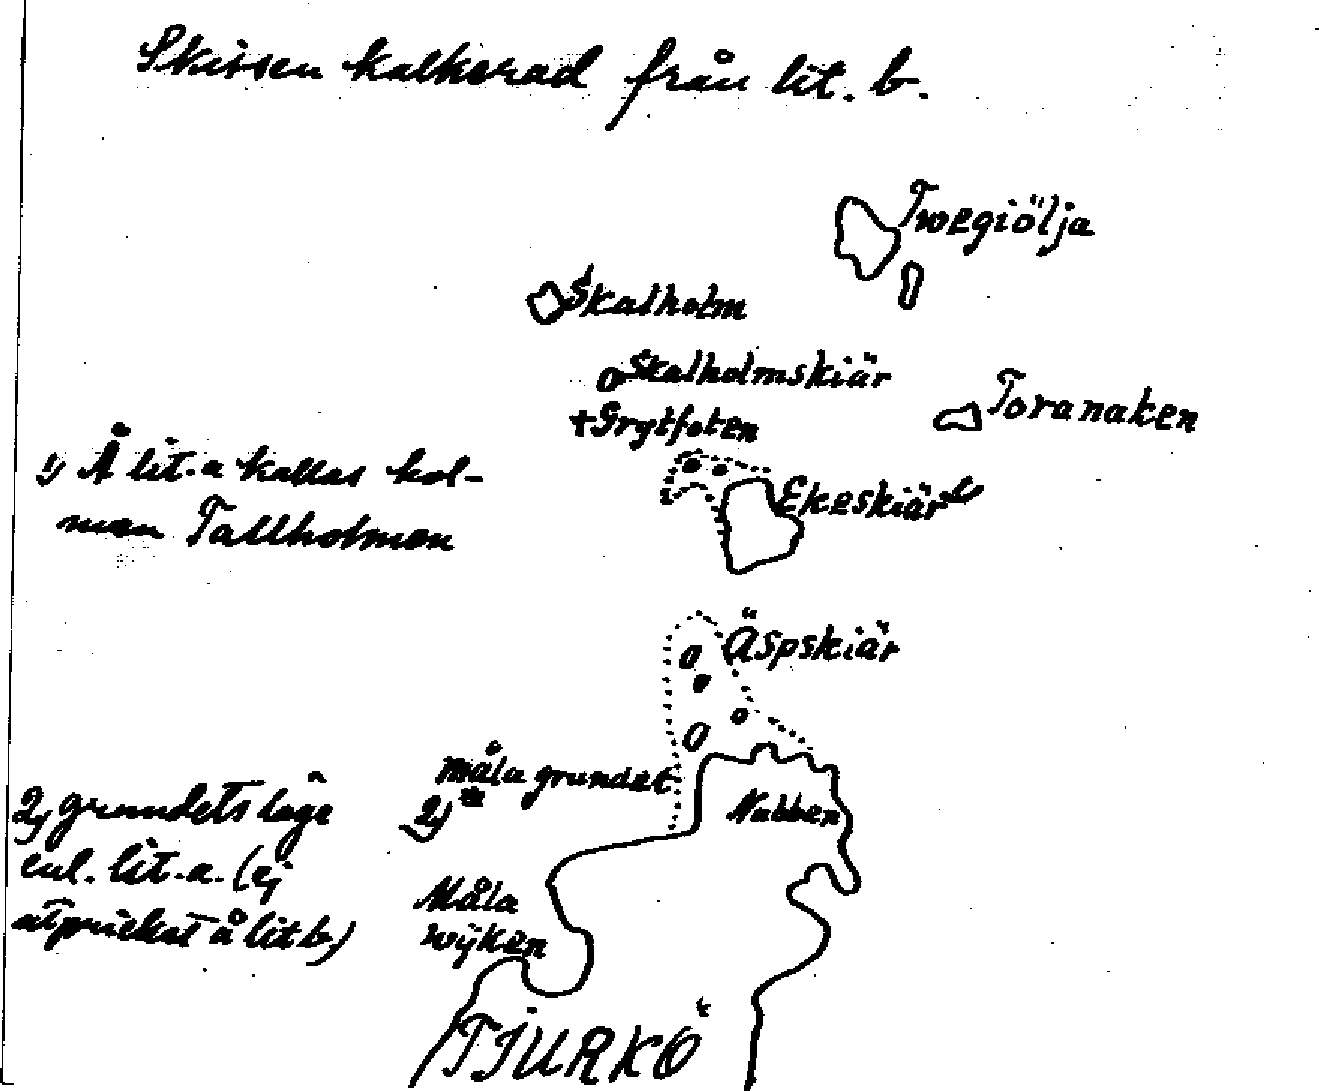 Skissen kalkerad från lit. b.
Twegiölja
Skalholm
Skalholmskiär
Toranaken
+Grytfoten
1) Å lit. a kallas hol-
men Tallholmen
Ekeskiär 1)
Äspskiär
Måla grundet
2)
Nabben
2) grundets läge
enl. lit. a. (ej
utprickat å lit b)
Måla
wÿken
TJURKÖ